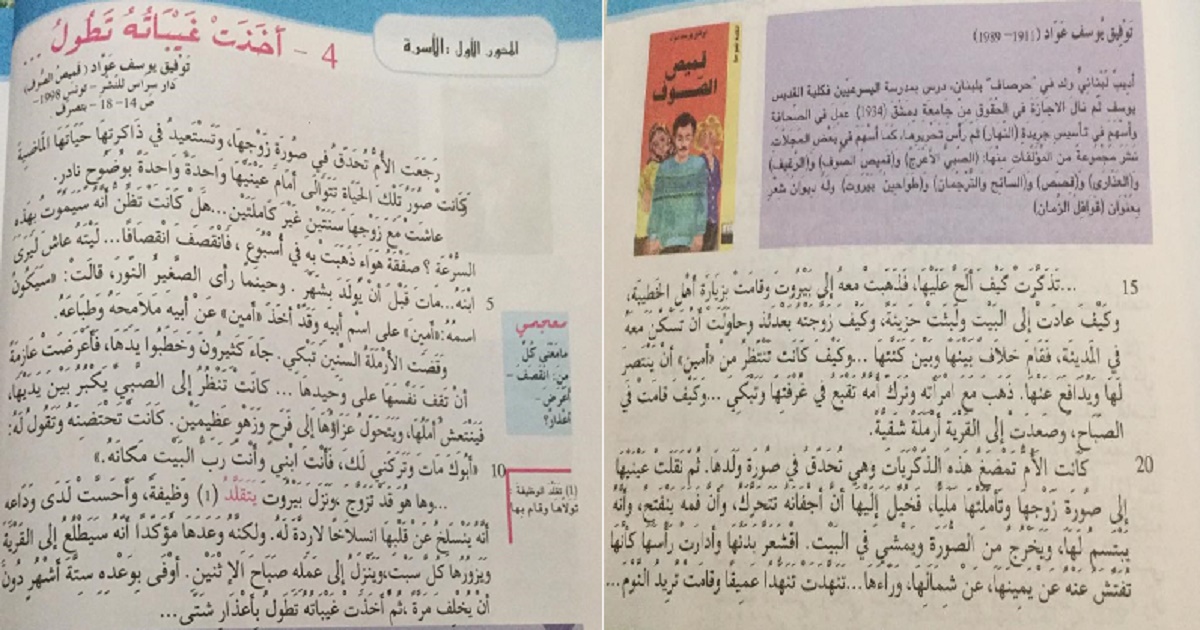 المحور الأول : الأسرة
4 - أَخَذَتْ غَيْبَاتُهُ تَطُولُ ...
توفيق يوسف عوّاد (قميص الصّوف)
دار سراس للنّشر - تونس 1998-
ص 14- 18 - بتصرف
رَجَعَت الأُمُّ تُحَدِّقُ في صُورَةِ زَوْجِهَا، وَتَسْتَعِيدُ فِي ذَاكِرَتِهَا حَيَاتَهَا الْمَاضِيَةَ
كَانَتْ صُوَرُ تِلْكَ الحَيَاة تَتَوَالَى أَمَامَ عَيْنَيْهَا وَاحدَةً وَاحدَةً بوُضُوح نَادر.
عاشَتْ مَعَ زَوْجِهَا سَنَتَيْنِ غَيْرَ كَاملَتَيْن...هَلْ كَانَتْ تَظُنُّ أَنَّهُ سَيَمُوتُ بهَذه
السُّرْعَة ؟ صَفْقَةُ هَوَاء ذَهَبَتْ به في أُسْبُوع ، فَانْقَصَفَ انْقصَافًا... لَيْتَهُ عاشَ لَيَرَى
5 ابنَهُ...مَاتَ قَبْلَ أَنْ يُولَدَ بشَهْر . وحينَمَا رأى الصَّغيرُ النُّورَ، قالَتْ: «سَيَكُونُ
اسمُهُ:«أمين» على اسْم أبيه وَقَدْ أخَذَ «أمين» عَنْ أبيه مَلَامحَهُ وَطبَاعَهُ.
وَقَضَت الأَرْمَلَةُ السّنينَ تَبْكي. جَاءَ كَثيرُونَ وخَطَبُوا يَدَهَا، فَأَعْرَضَتْ عَازمَةً
أَنْ تَقفَ نَفْسَهَا على وَحيدهَا ... كانَتْ تَنْظُرُ إلى الصَّبيّ يَكْبُرُ بَيْنَ يَدَيْهَا،
فَيَنْتَعشُ أَمَلُهَا، ويَتَحَولُ عَزَاؤُهَا إلى فَرَح وَزَهْو عَظيمَيْن. كَانَتْ تَحْتَضنُهُ وَتَقُولُ لَهُ:
10 «أَبُوكَ مَاتَ وَتَرَكَني لَكَ، فَأَنْتَ ابْني وأَنْتَ رَبُّ البَيْت مَكَانَهُ.»
...وها هو قَدْ تَزَوَّجَ ،ونَزَلَ بيْرُوتَ يَتَقَلَّدُ (1) وَظيفَةً، وَأَحَسَّتْ لَدَى وَدَاعه
أَنَّهُ يَنْسَلخُ عَنْ قَلْبهَا انسلَاخًا لاردَّةَ لَهُ. ولكنَّهُ وَعَدَهَا مُؤَكّدًا أَنَّهُ سَيَطْلُعُ إلى القَرْيَة
وَيَزُورُهَا كُلَّ سَبت،وَيَنْزلُ إلى عَمَله صَبَاحَ الإثْنَيْن. أَوْفَى بوَعْده ستَّةَ أَشْهُر دُونَ
أَنْ يُخْلفَ مَرَّةً ،ثُمَّ أَخَذَتْ غَيْبَاتُهُ تَطُولُ بأَعْذَار شَتَّى...
معجمي
مامَعْنَى كُلّ
من: انْقَصَفَ -
أَعْرَضَ -
أَعْذَار؟
(1) تقلّد الوظيفة :
تولاّها وقام بها
قميص
الصّوف
تَوفيق يُوسف عَوّاد (1911- 1989)
أديبٌ لُبْنَانيٌّ ولد في "حرصاف" بلبنان، درس بمدرسة اليسوعيّين فكلية القديس
يوسف ثم نال الاجازة في الحقوق منْ جامعة دمشق (1934) عمل في الصحافة
وأسهم في تأسيس جريدة (النهار) ثم رأس تحريرها، كما أسهم في بعض المجلات.
نشر مجموعة من المؤلفات منها: (الصبيّ الأعرج) و(قميص الصوف) و(الرغيف)
و(العذارى) و(قصص) و(السائح والتّرجمان) و(طواحين بيروت) وله ديوان شعر
بعنوان (قوافل الزّمان)
15 ...تَذَكَّرَتْ كَيْفَ أَلَحَّ عَلَيْهَا، فَذَهَبَتْ مَعَهُ إلى بَيْرُوتَ وقامَتْ بزيَارَة أَهْل الخَطيبَة،
وكَيْفَ عادَتْ إلى البَيْت ولَبثَتْ حَزينَةً، وكَيْفَ زَوَّجَتْهُ بَعْدَئذ وحاوَلَتْ أَنْ تَسْكُنَ مَعَهُ
في المَدينَة، فَقَامَ خلَافٌ بَيْنَهَا وَبَيْنَ كَنَّتهَا ...وكَيْفَ كَانَتْ تَنْتَظرُ منْ «أمين» أَنْ يَنْتَصرَ
لَهَا وَيُدَافعَ عَنْهَا. ذَهَبَ مَعَ امْرَأَته وتَرَكَ أُمَّهُ تَقْبَعُ في غُرْفَتهَا وَتَبْكي ...وكَيْفَ قامَتْ في
الصّبَاح، وصَعدَتْ إلى القَرْيَة أَرْمَلَةً شَقيَّةً.
20 كَانَت الأُمُّ تَمْضَغُ هَذه الذّكْرَيَات وهي تُحَدّقُ في صُورَة ولَدهَا. ثُمَّ نَقَلَتْ عَيْنَيْهَا
إلى صُورَة زَوْجهَا وتَأَمَّلَتْهَا مَليًّا، فَخُيّلَ إلَيْهَا أَنَّ أَجْفَانَهُ تَتَحَرَّكُ، وأَنَّ فَمَهُ يَنْفَتحُ، وأَنَّهُ
يَبْتَسمُ لَهَا، ويَخْرُجُ منَ الصُّورَة ويَمْشي في البَيْت. اقْشَعَرَّ بَدَنُهَا وأَدَارَتْ رَأْسَهَا كَأَنَّهَا
تُفَتّشُ عَنْهُ عَنْ يَمينهَا، عَنْ شمَالهَا، وراءَهَا...تَنَهَّدَتْ تَنَهُّدًا عَميقًا وقَامَتْ تُريدُ النَّوْمَ...